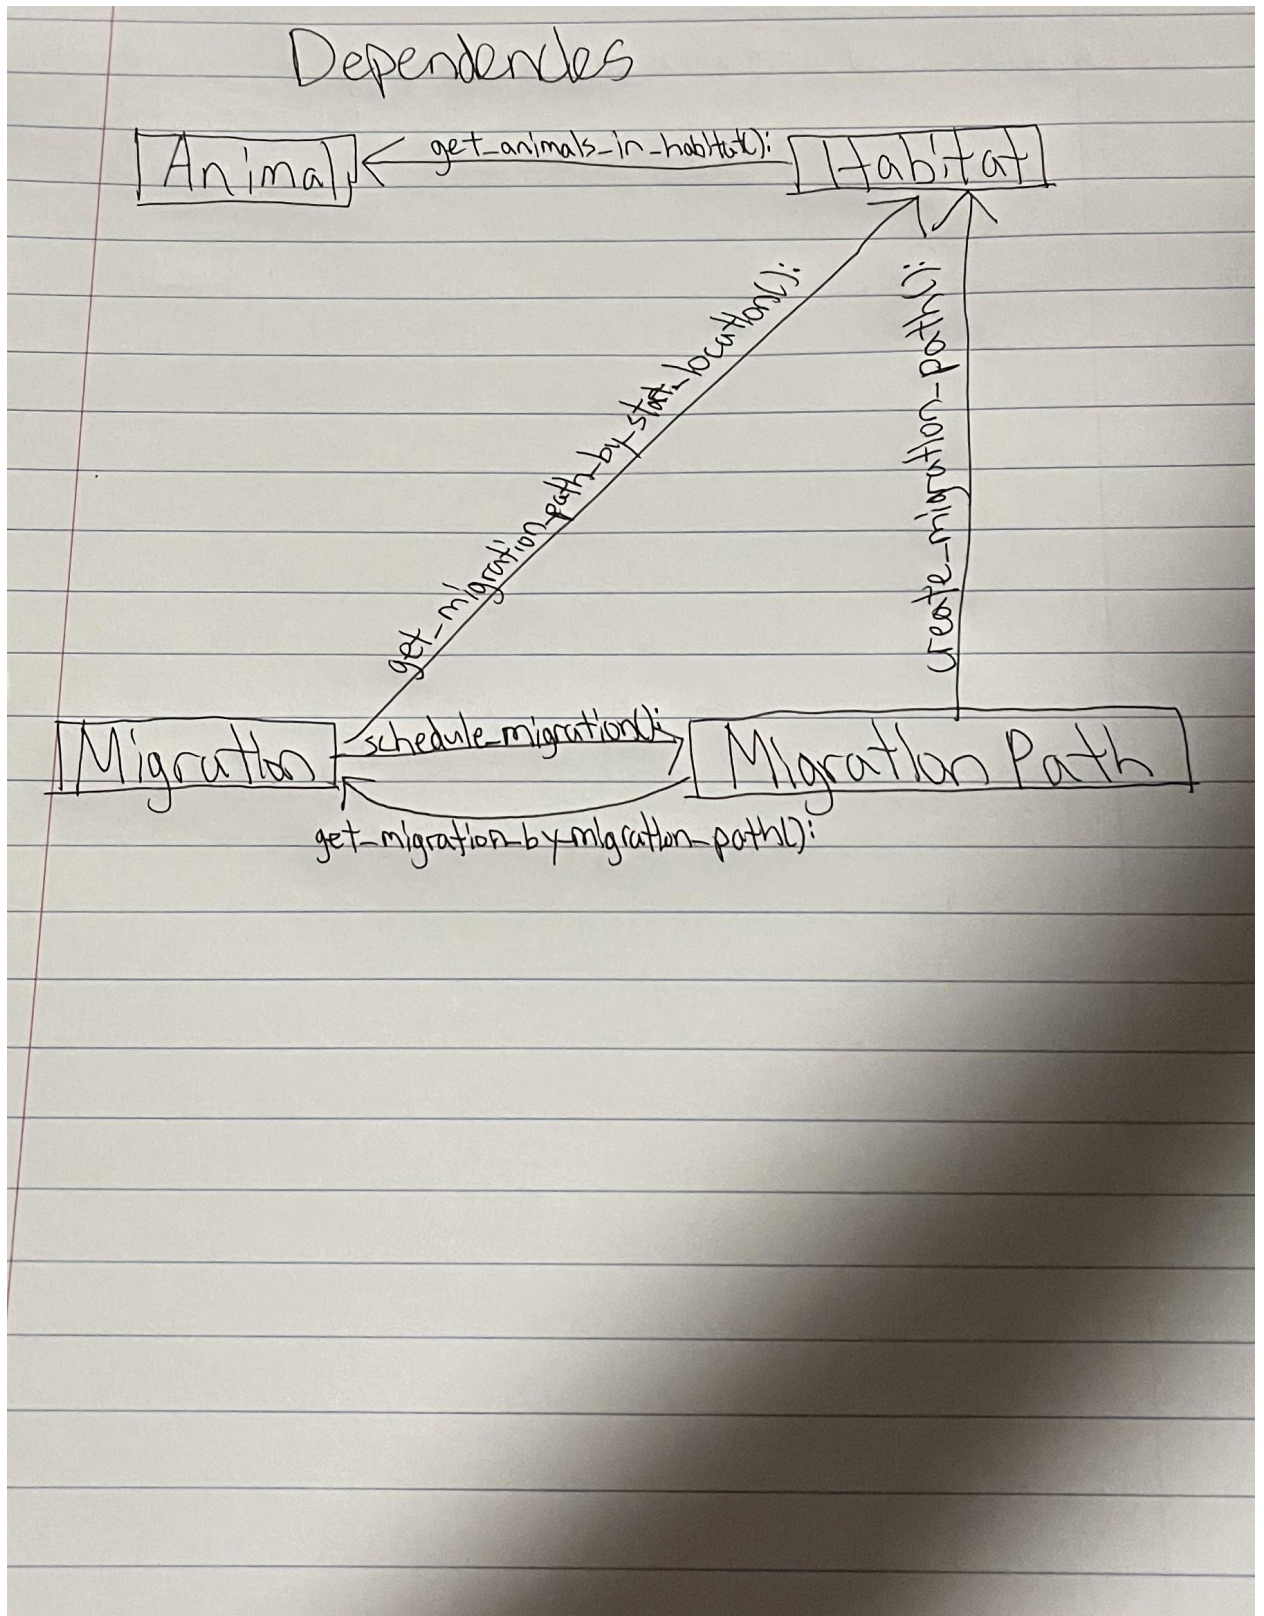 Dependencies
Animal
get_animals_in_habitat():
Habitat
get_migration_path_by_start_location():
create_migration_path():
Migration
schedule_migration():
Migration Path
get_migration_by_migration_path():